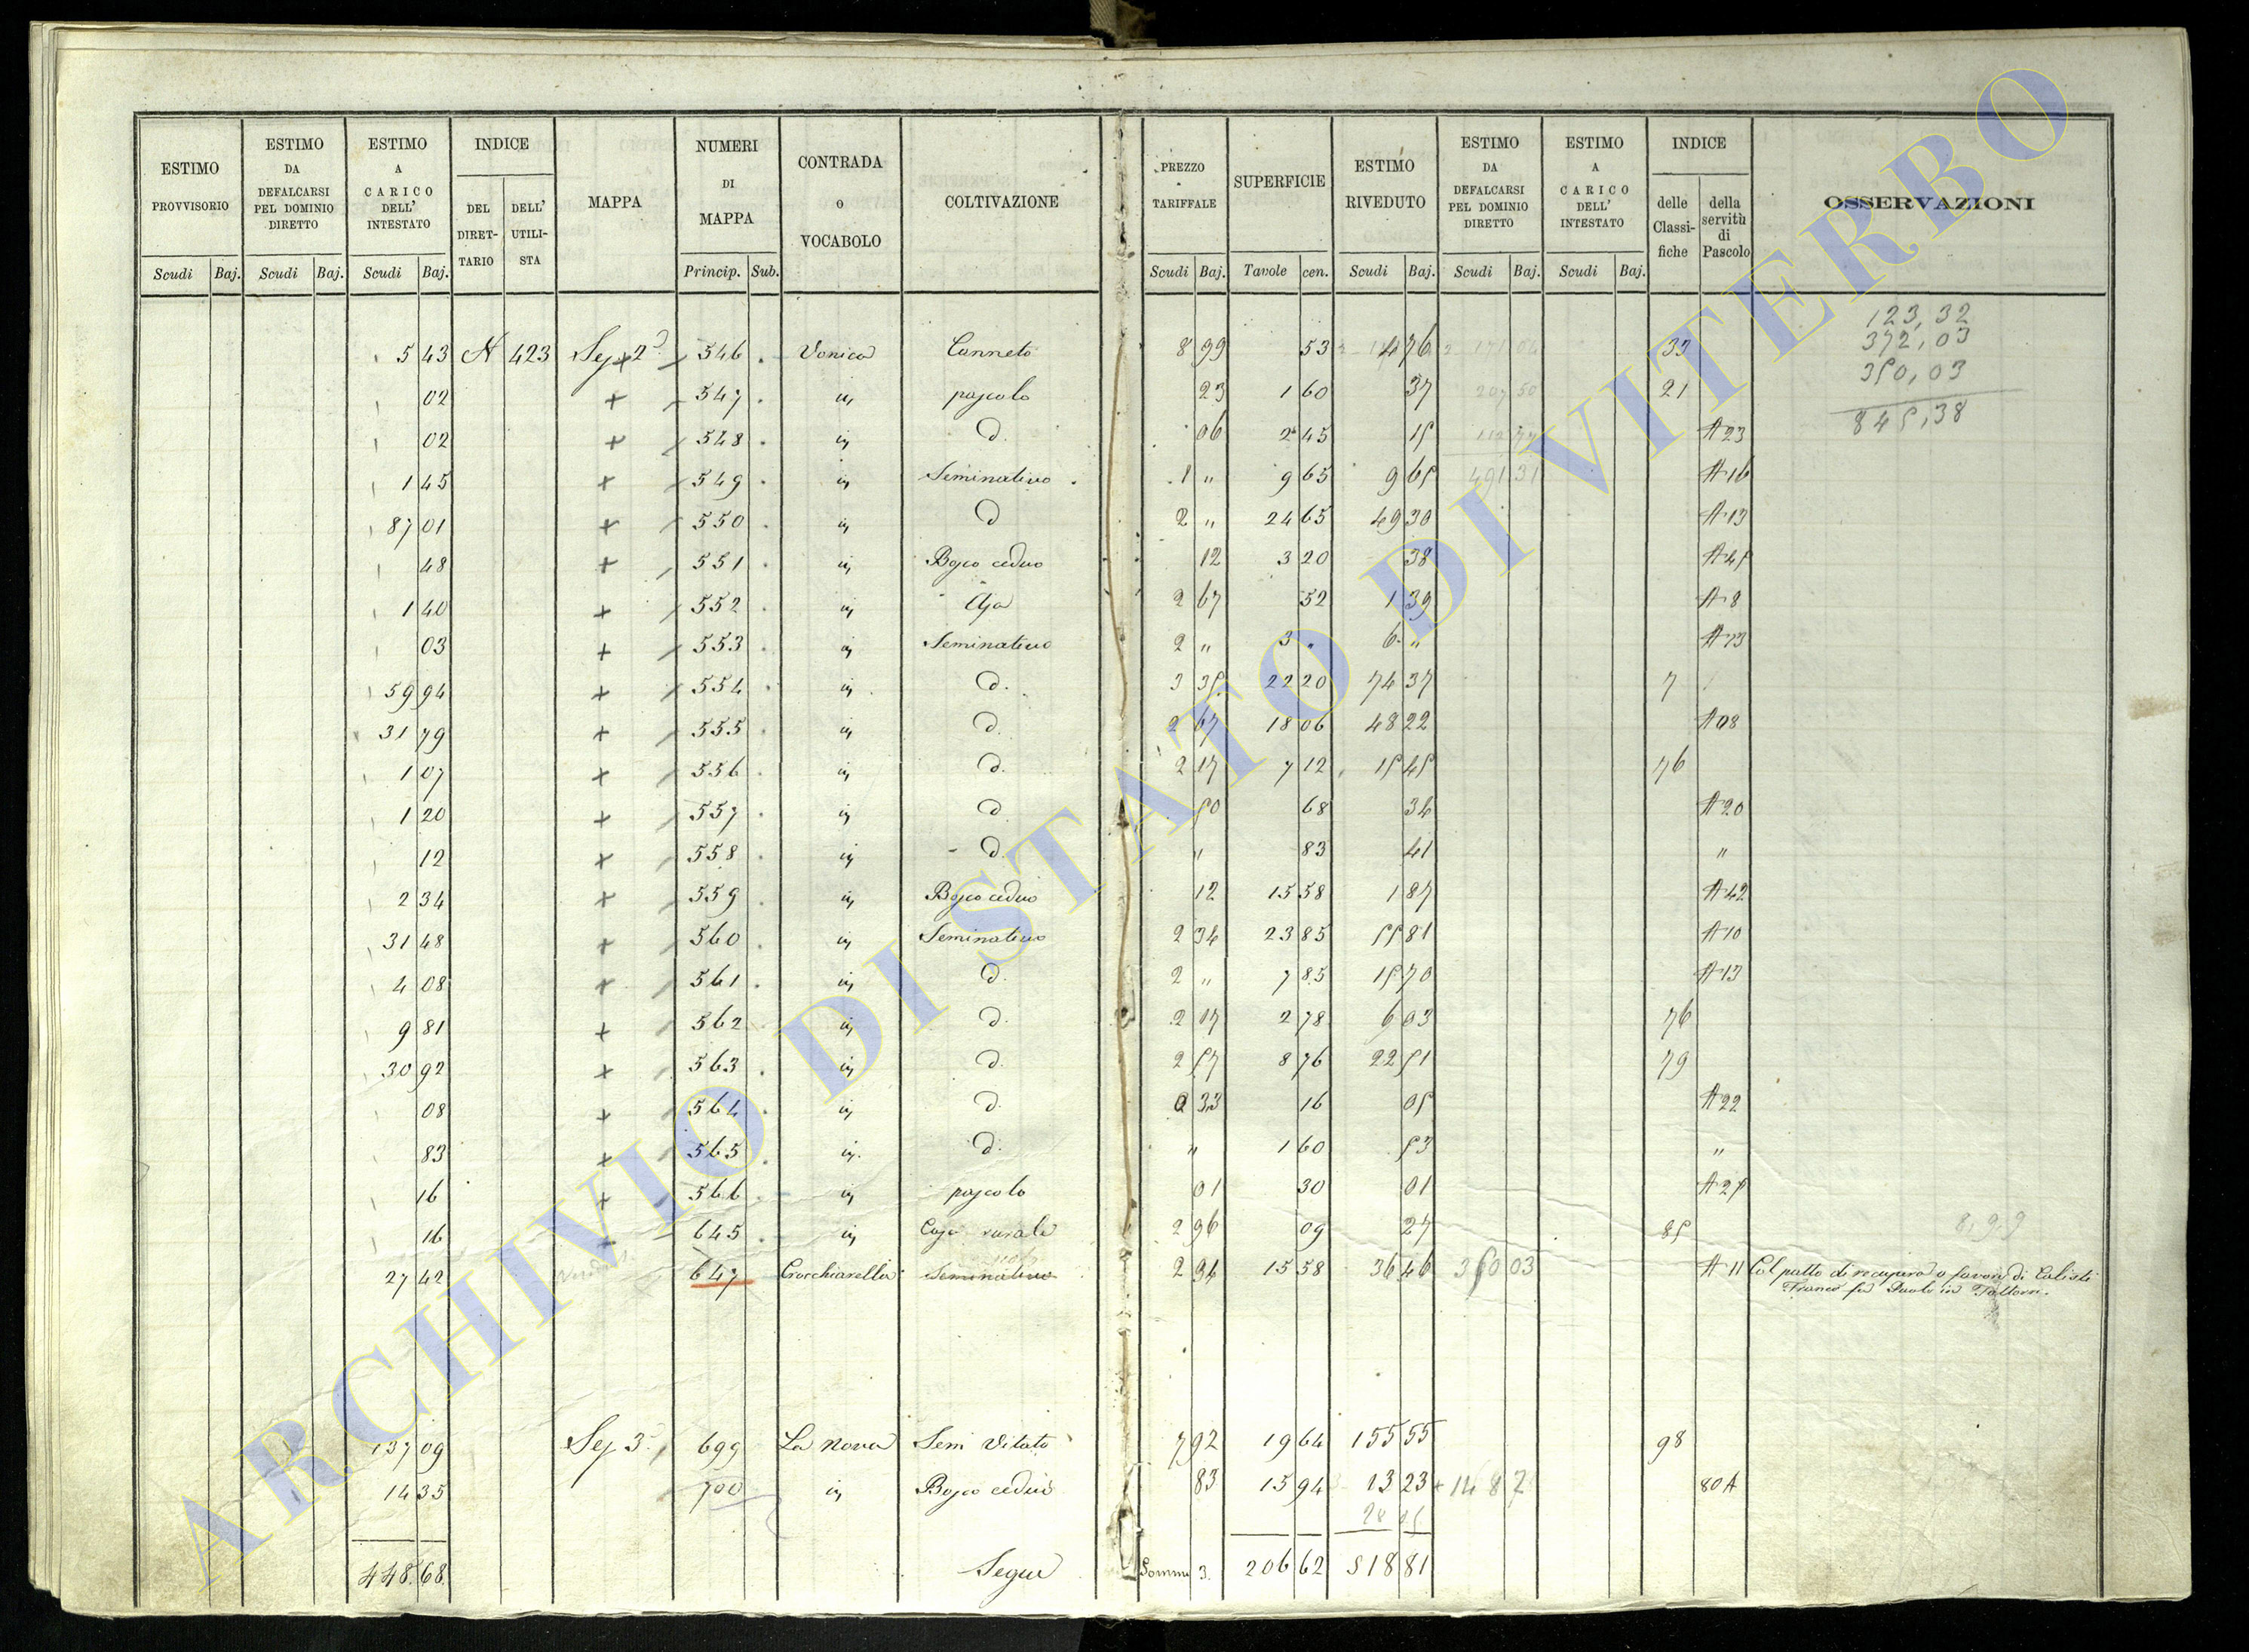 ESTIMO PROVVISORIO Scudi Baj.
ESTIMO DA DEFALCARSI PEL DOMINIO DIRETTO Scudi Baj.
ESTIMO A CARICO DELL' INTESTATO Scudi Baj.
INDICE DEL DIRET-TARIO DELL' UTILI-STA
MAPPA
NUMERI DI MAPPA Princip. Sub.
CONTRADA O VOCABOLO
COLTIVAZIONE
PREZZO TARIFFALE Scudi Baj.
SUPERFICIE Tavole cen.
ESTIMO RIVEDUTO Scudi Baj.
ESTIMO DA DEFALCARSI PEL DOMINIO DIRETTO Scudi Baj.
ESTIMO A CARICO DELL' INTESTATO Scudi Baj.
INDICE delle Classi-fiche della servitù di Pascolo
OSSERVAZIONI
123,32
372,03
350,03
845,38
5 43 N 423 Sez 2ª 546 Canneto 8 99 53 4 76 33
02 + 547 in pascolo 23 1 60 37 21
02 + 548 in d. 06 2 45 15 A 23
1 45 + 549 in Seminativo 1 " 9 65 9 65 491 31 A 16
87 01 + 550 in d 2 " 24 65 49 30 A 13
48 + 551 in Bosco ceduo 12 3 20 38 A 45
1 40 + 552 in Aja 2 67 52 1 39 A 8
03 + 553 in Seminativo 2 " 3 " 6 " A 13
59 94 + 554 in d. 3 35 22 20 74 37 7
31 79 + 555 in d. 2 67 18 06 48 22 A 08
1 07 + 556 in d. 2 17 7 12 15 45 76
1 20 + 557 in d 50 68 34 A 20
12 + 558 in d. " 83 41 "
2 34 + 559 in Bosco ceduo 12 15 58 1 87 A 42
31 48 + 560 in Seminativo 2 34 23 85 55 81 A 10
4 08 + 561 in d. 2 " 7 85 15 70 A 13
9 81 + 562 in d. 2 17 2 78 6 03 76
30 92 + 563 in d. 2 57 8 76 22 51 79
08 + 564 in d. 0 33 16 05 A 22
83 + 565 in d. " 1 60 53 "
16 + 566 in pascolo 01 30 01 A 25
16 + 645 in Casa rurale 2 96 09 27 85 8,9,9
27 42 647 Crocchiarella Seminativo 2 34 15 58 36 46 350 03 A 11 Col patto di recupero a favore di Calisti
Franco fu Paolo in
137 09 Sez 3ª 699 La Nova Sem Vitato 7 92 19 64 155 55 98
14 35 700 in Bosco ceduo 83 15 94 13 23 + 14 87 80 A
448 68 Segue Somma 3. 206 62 518 81
ARCHIVIO DI STATO DI VITERBO